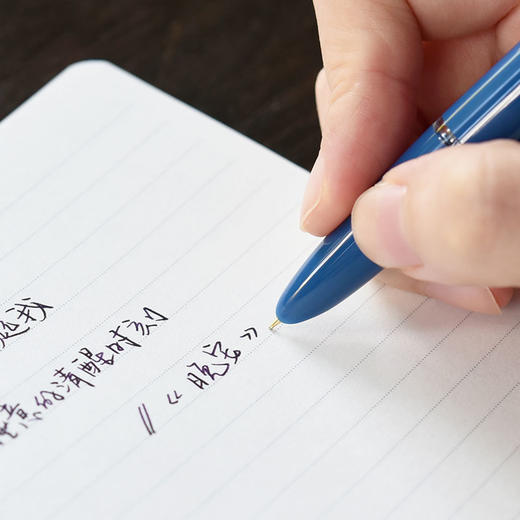 我
意的清醒时刻
//《晚安》